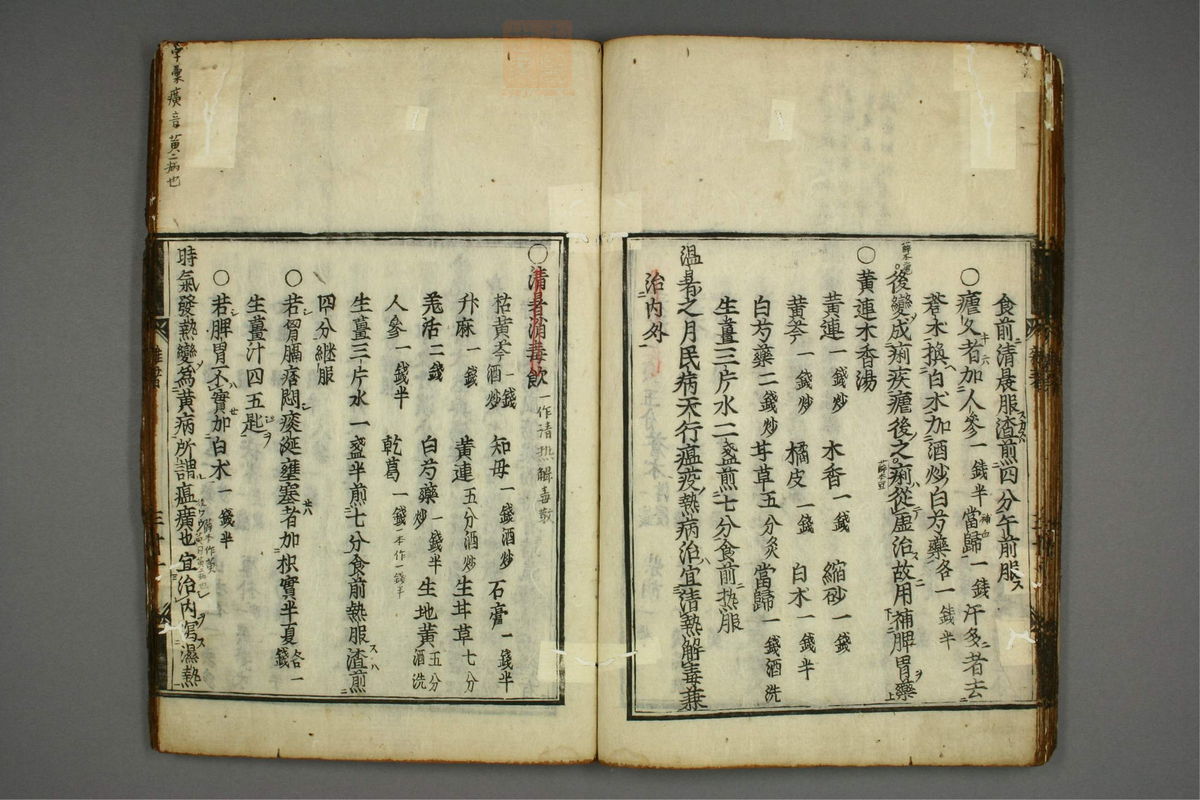 食前清晨服渣煎四分午前服
○瘧久者加人參一錢半當歸一錢汗多者去
蒼朮換白朮加酒炒白芍藥各一錢半
後變成痢疾瘧後之痢從虛治故用補脾胃藥
○黃連木香湯
黃連一錢炒 木香一錢 縮砂一錢
黃芩一錢炒 橘皮一錢 白朮一錢半
白芍藥二錢炒 甘草五分炙 當歸一錢酒洗
生薑三片水二盞煎七分食前热服
溫暑之月民病天行瘟疫熱病治宜清熱解毒兼
治內外
○清暑消毒飲 一作清热解毒散
枯黃芩一錢酒炒 知母一錢酒炒 石膏一錢半
升麻一錢 黃連五分酒炒 生甘草七分
羌活二錢 白芍藥一錢半炒 生地黃五分酒洗
人參一錢半 乾葛一錢 一本作一錢半
生薑三片水一盞半煎七分食前熱服渣煎
四分継服
○若胃膈痞悶痰涎壅塞者加枳實半夏各一錢
生薑汁四五匙
○若脾胃不實加白朮一錢半
時氣發熱變為黃病所謂瘟癀也宜治內瀉濕熱
字彙癀音黃病也